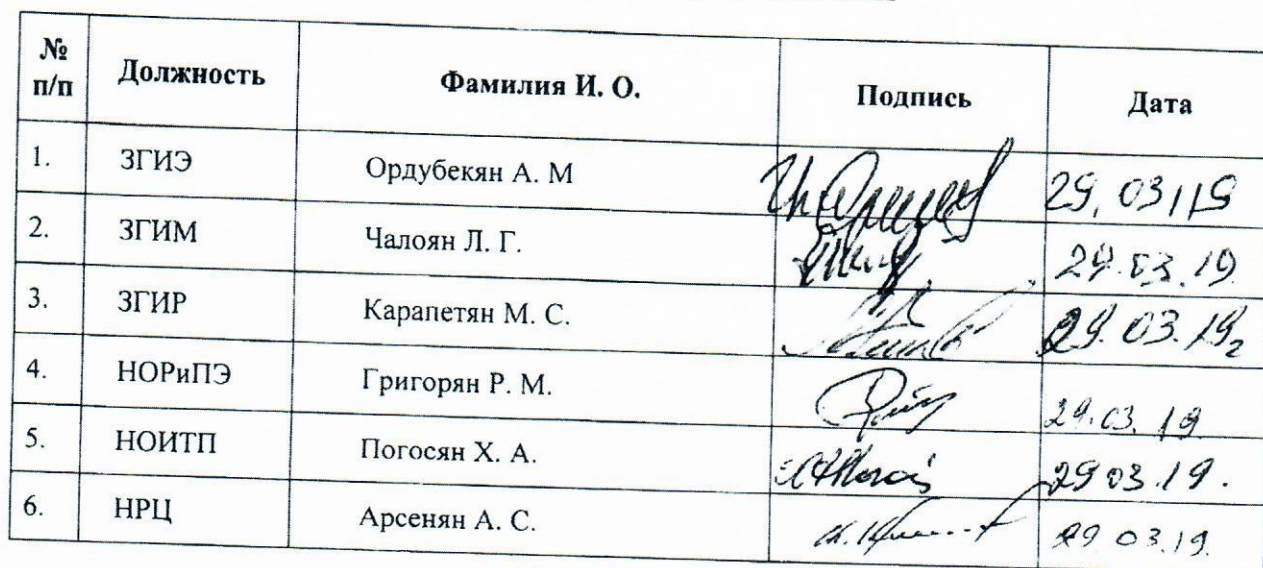 № п/п Должность Фамилия И. О. Подпись Дата
1. ЗГИЭ Ордубекян А. М 29.03.19
2. ЗГИМ Чалоян Л. Г. 29.03.19.
3. ЗГИР Карапетян М. С. 29.03.19г
4. НОРиПЭ Григорян Р. М. 29.03.19.
5. НОИТП Погосян Х. А. 29 03.19.
6. НРЦ Арсенян А. С. 29 03.19.